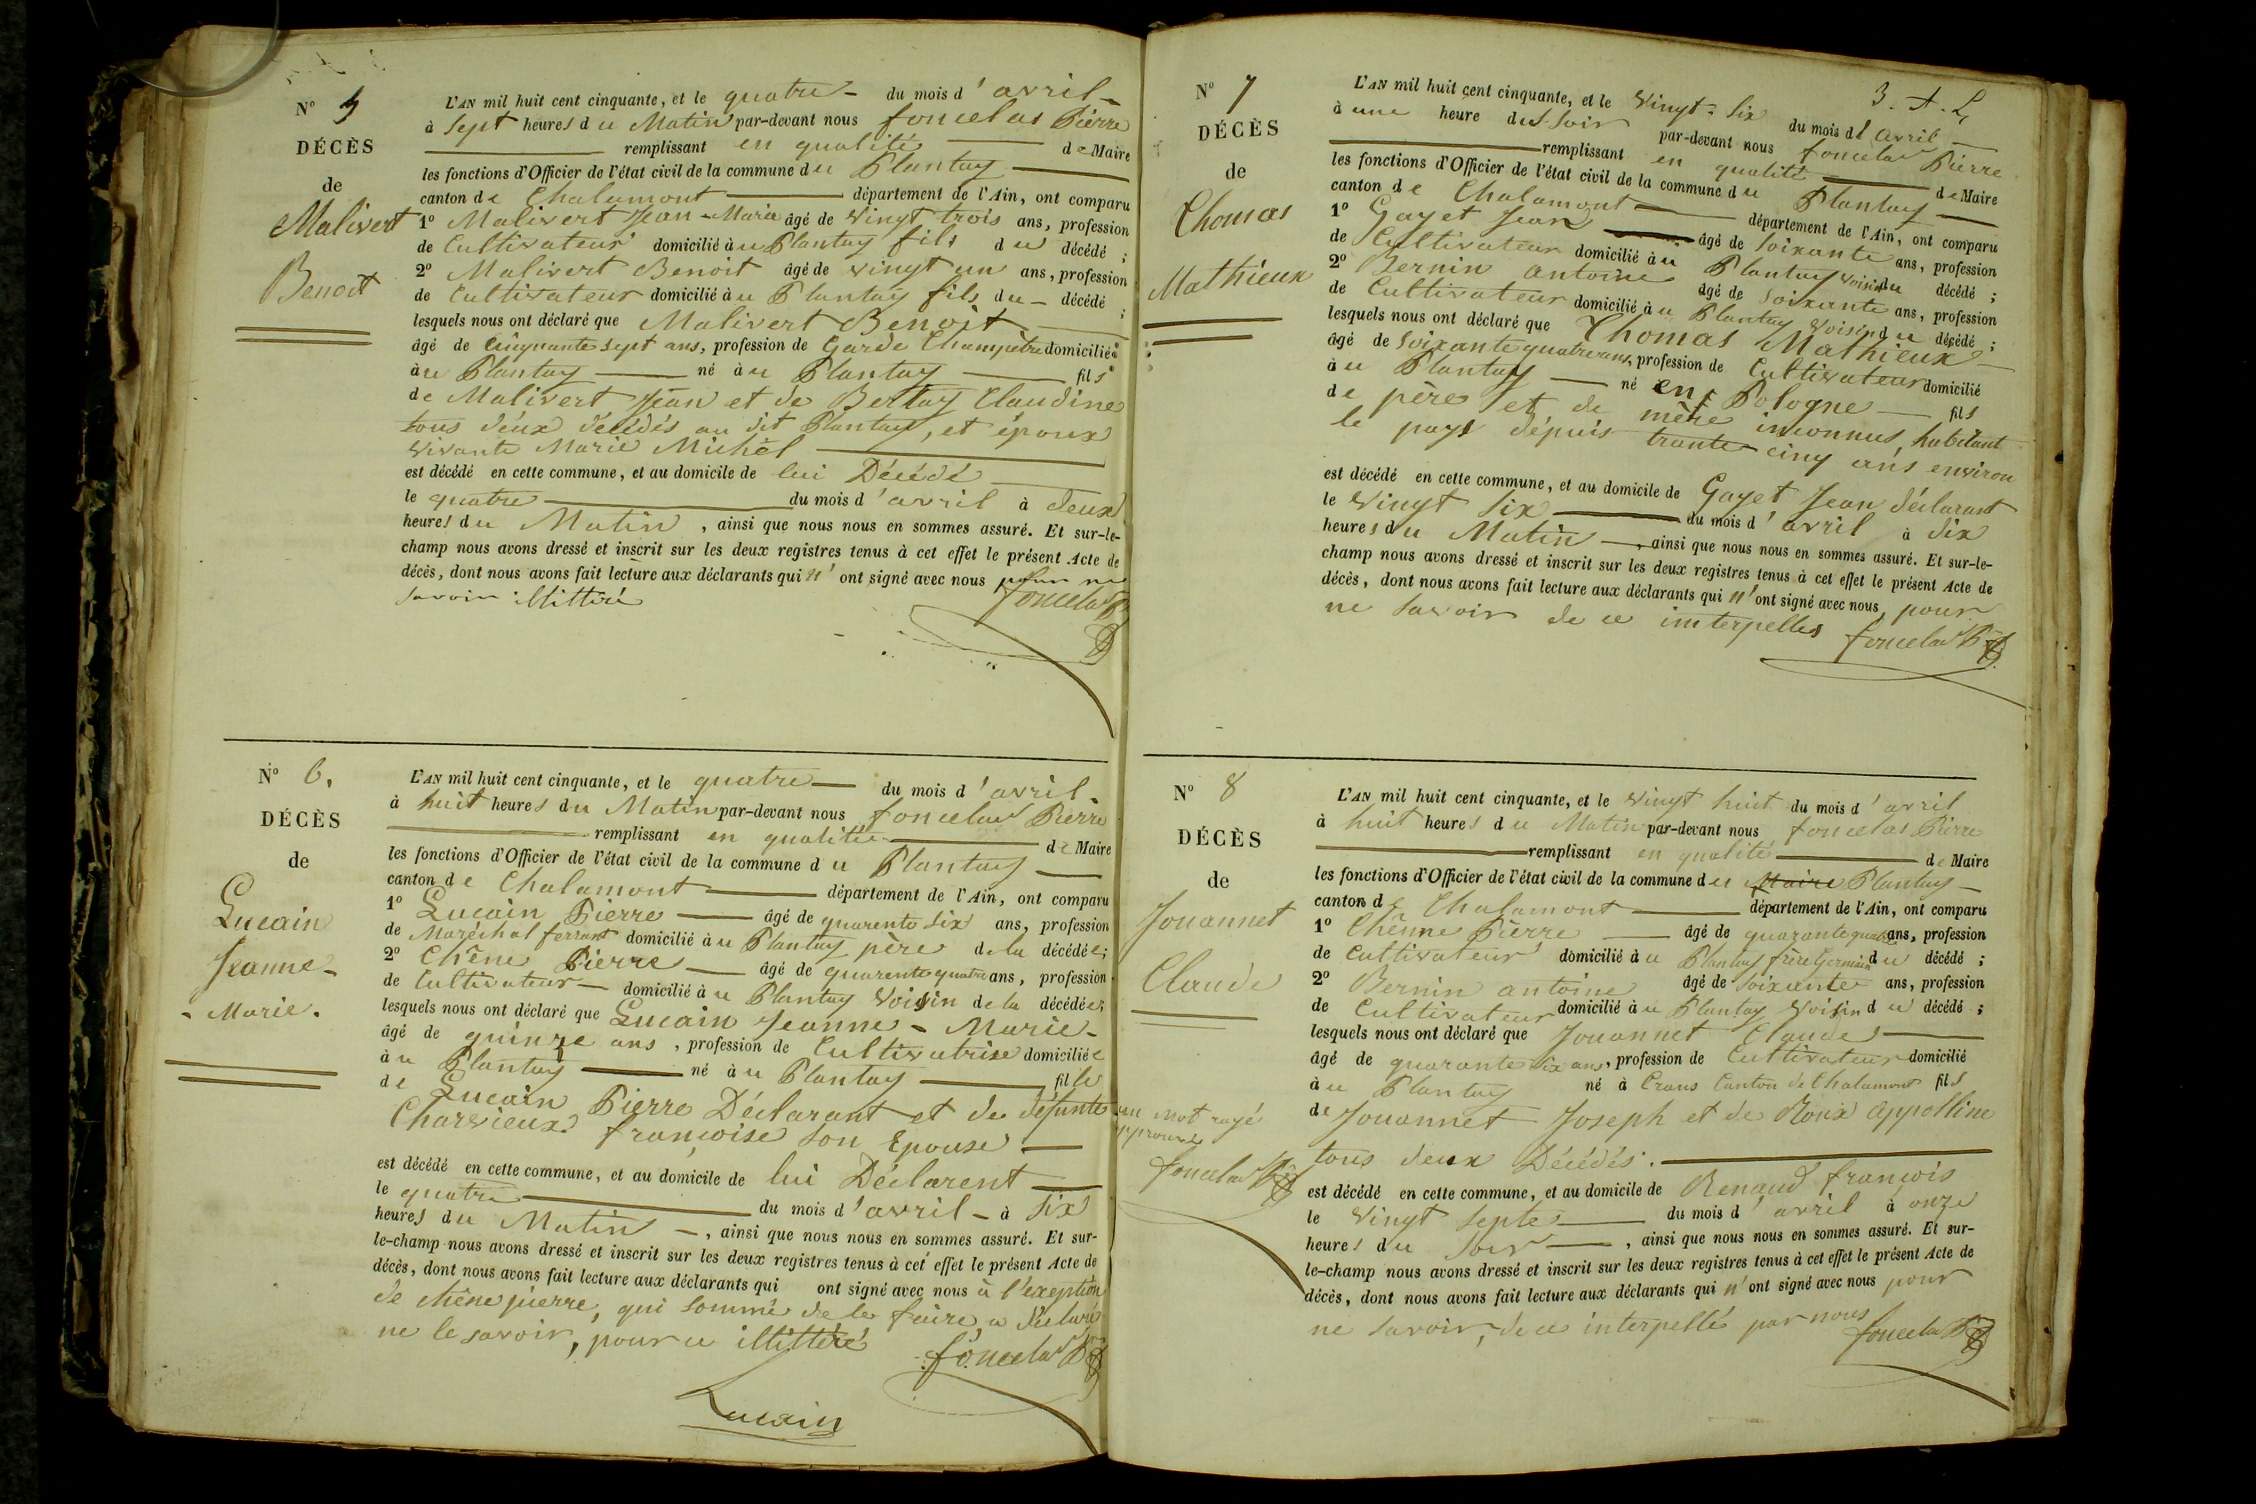 N° 5
DÉCÈS
de
Malivert
Benoit
L'AN mil huit cent cinquante, et le quatre - du mois d'avril -
à sept heures du Matin par-devant nous foncelas Pierre
remplissant en qualité de Maire
les fonctions d'Officier de l'état civil de la commune du Plantay
canton de Chalamont département de l'Ain, ont comparu
1° Malivert Jean-Marie âgé de vingt trois ans, profession
de Cultivateur domicilié au Plantay fils du décédé ;
2° Malivert Benoit âgé de vingt un ans, profession
de Cultivateur domicilié au Plantay fils du - décédé ;
lesquels nous ont déclaré que Malivert Benoit
âgé de Cinquante sept ans, profession de Garde Champêtre domicilié
au Plantay né au Plantay fils
de Malivert Jean et de Bertay Claudine
tous deux décédés au dit Plantay, et époux
vivante Marie Michel
est décédé en cette commune, et au domicile de lui Décédé
le quatre du mois d'avril à deux
heures du Matin, ainsi que nous nous en sommes assuré. Et sur-le-
champ nous avons dressé et inscrit sur les deux registres tenus à cet effet le présent Acte de
décès, dont nous avons fait lecture aux déclarants qui n'ont signé avec nous pour ne
savoir illittiré foncelas P
N° 6.
DÉCÈS
de
Lucain
Jeanne -
- Marie.
L'AN mil huit cent cinquante, et le quatre - du mois d'avril.
à huit heures du Matin par-devant nous foncelas Pierre
remplissant en qualitée de Maire
les fonctions d'Officier de l'état civil de la commune du Plantay
canton de Chalamont département de l'Ain, ont comparu
1° Lucain Pierre âgé de quarente six ans, profession
de Maréchal ferrant domicilié au Plantay père de la décédée ;
2° Chêne Pierre âgé de quarente quatre ans, profession
de Cultivateur - domicilié au Plantay Voisin de la décédée ;
lesquels nous ont déclaré que Lucain Jeanne - Marie -
âgé de quinze ans, profession de Cultivatrise domiciliée
au Plantay né au Plantay fille
de Lucain Pierre Déclarant et de défunte
Charvieux françoise son Epouse
est décédé en cette commune, et au domicile de lui Déclarent
le quatre du mois d'avril - à six
heures du Matin -, ainsi que nous nous en sommes assuré. Et sur-
le-champ nous avons dressé et inscrit sur les deux registres tenus à cet effet le présent Acte de
décès, dont nous avons fait lecture aux déclarants qui ont signé avec nous à l'exeption
de chêne pierre, qui sommé de le faire a déclaré
ne le savoir, pour ce illittéré foncelas P
Lucain
3. A. L,
N° 7
DÉCÈS
de
Thomas
Mathieux
L'AN mil huit cent cinquante, et le vingt-six du mois d'avril
à une heure du Soir par-devant nous foncelas Pierre
remplissant en qualité de Maire
les fonctions d'Officier de l'état civil de la commune du Plantay
canton de Chalamont département de l'Ain, ont comparu
1° Gayet Jean âgé de soixante ans, profession
de Cultivateur domicilié au Plantay voisin du décédé ;
2° Bernin antoine âgé de soixante ans, profession
de Cultivateur domicilié au Plantay voisin du décédé ;
lesquels nous ont déclaré que Thomas Mathieux
âgé de soixante quatre ans, profession de Cultivateur domicilié
au Plantay né en Pologne fils
de père et de mère inconnus, habitant
le pays depuis trante cinq ans environ
est décédé en cette commune, et au domicile de Gayet Jean déclarant
le vingt six du mois d'avril à dix
heures du Matin, ainsi que nous nous en sommes assuré. Et sur-le-
champ nous avons dressé et inscrit sur les deux registres tenus à cet effet le présent Acte de
décès, dont nous avons fait lecture aux déclarants qui n'ont signé avec nous, pour
ne savoir de ce interpellés foncelas P
N° 8
DÉCÈS
de
Jouannet
Claude
un mot rayé
approuvé
foncelas P
L'AN mil huit cent cinquante, et le vingt huit du mois d'avril
à huit heures du Matin par-devant nous foncelas Pierre
remplissant en qualité de Maire
les fonctions d'Officier de l'état civil de la commune du Maire Plantay
canton de Chalamont département de l'Ain, ont comparu
1° Chênne Pierre âgé de quarante quatre ans, profession
de Cultivateur domicilié au Plantay frère Germain du décédé ;
2° Bernin antoine âgé de soixante ans, profession
de Cultivateur domicilié au Plantay Voisin du décédé ;
lesquels nous ont déclaré que Jouannet Claude
âgé de quarante six ans, profession de Cultivateur domicilié
au Plantay né à Crans Canton de Chalamont fils
de Jouannet Joseph et de Roux Appolline
tous deux Décédés.
est décédé en cette commune, et au domicile de Renaud françois
le vingt septe du mois d'avril à onze
heures du Soir, ainsi que nous nous en sommes assuré. Et sur-
le-champ nous avons dressé et inscrit sur les deux registres tenus à cet effet le présent Acte de
décès, dont nous avons fait lecture aux déclarants qui n'ont signé avec nous pour
ne savoir, de ce interpellé par nous foncelas P